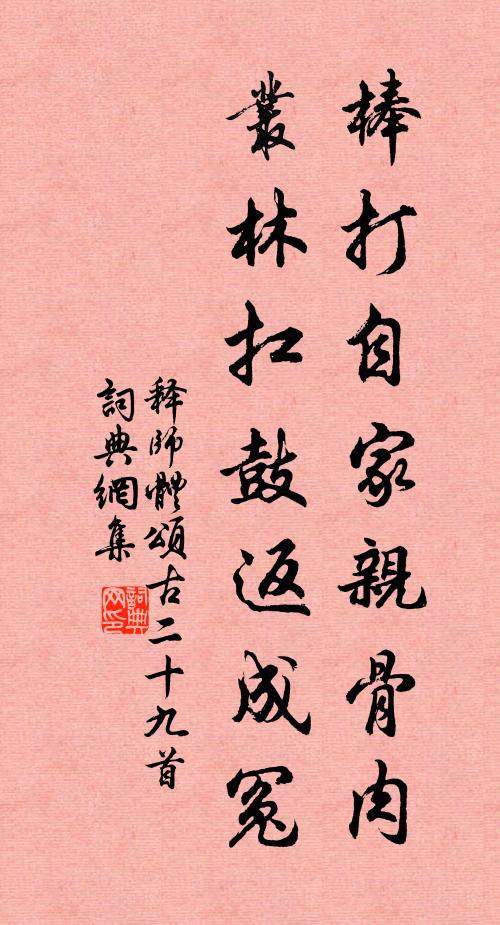 棒打自家親骨肉
叢林扛鼓返成冤
释師體頌古二十九首
詞典網集
詞典网印